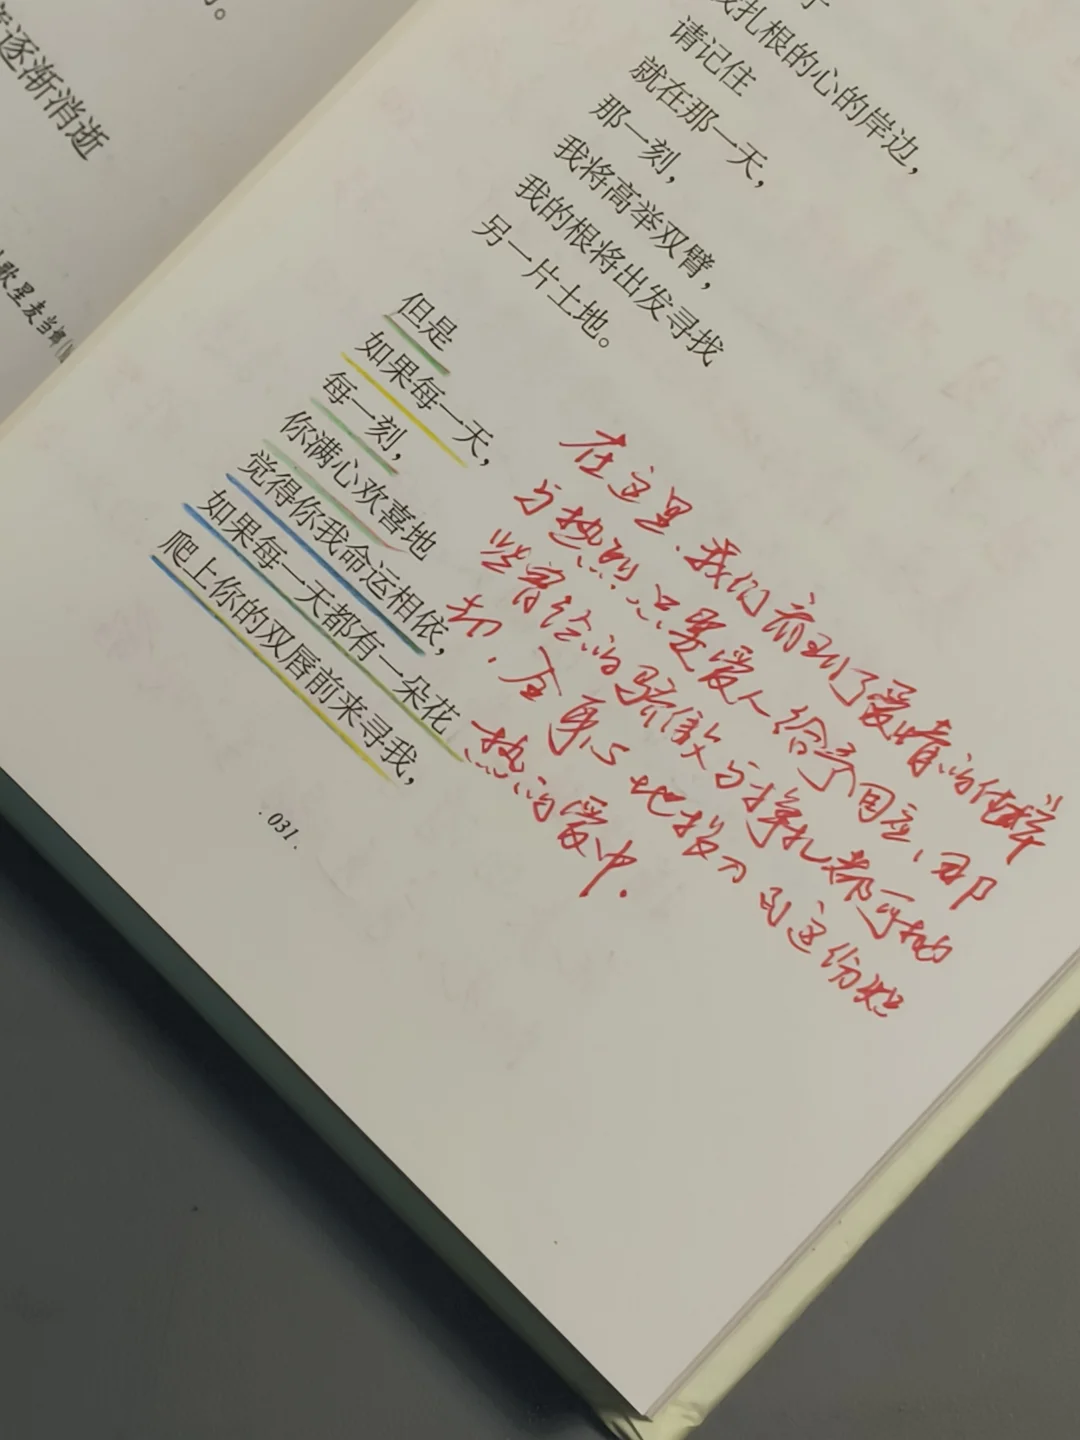 逐渐消逝
歌星麦当娜
扎根的心的岸边，
请记住
就在那一天，
那一刻，
我将高举双臂，
我的根将出发寻找
另一片土地。
但是
如果每一天，
每一刻，
你满心欢喜地
觉得你我命运相依，
如果每一天都有一朵花
爬上你的双唇前来寻我，
在这里，我们看到了爱情的纯粹
与热烈，只要爱人给予回应，那
些曾经的骄傲与挣扎都可抛
却，全身心地投入到这份炽
热的爱中.
.031.